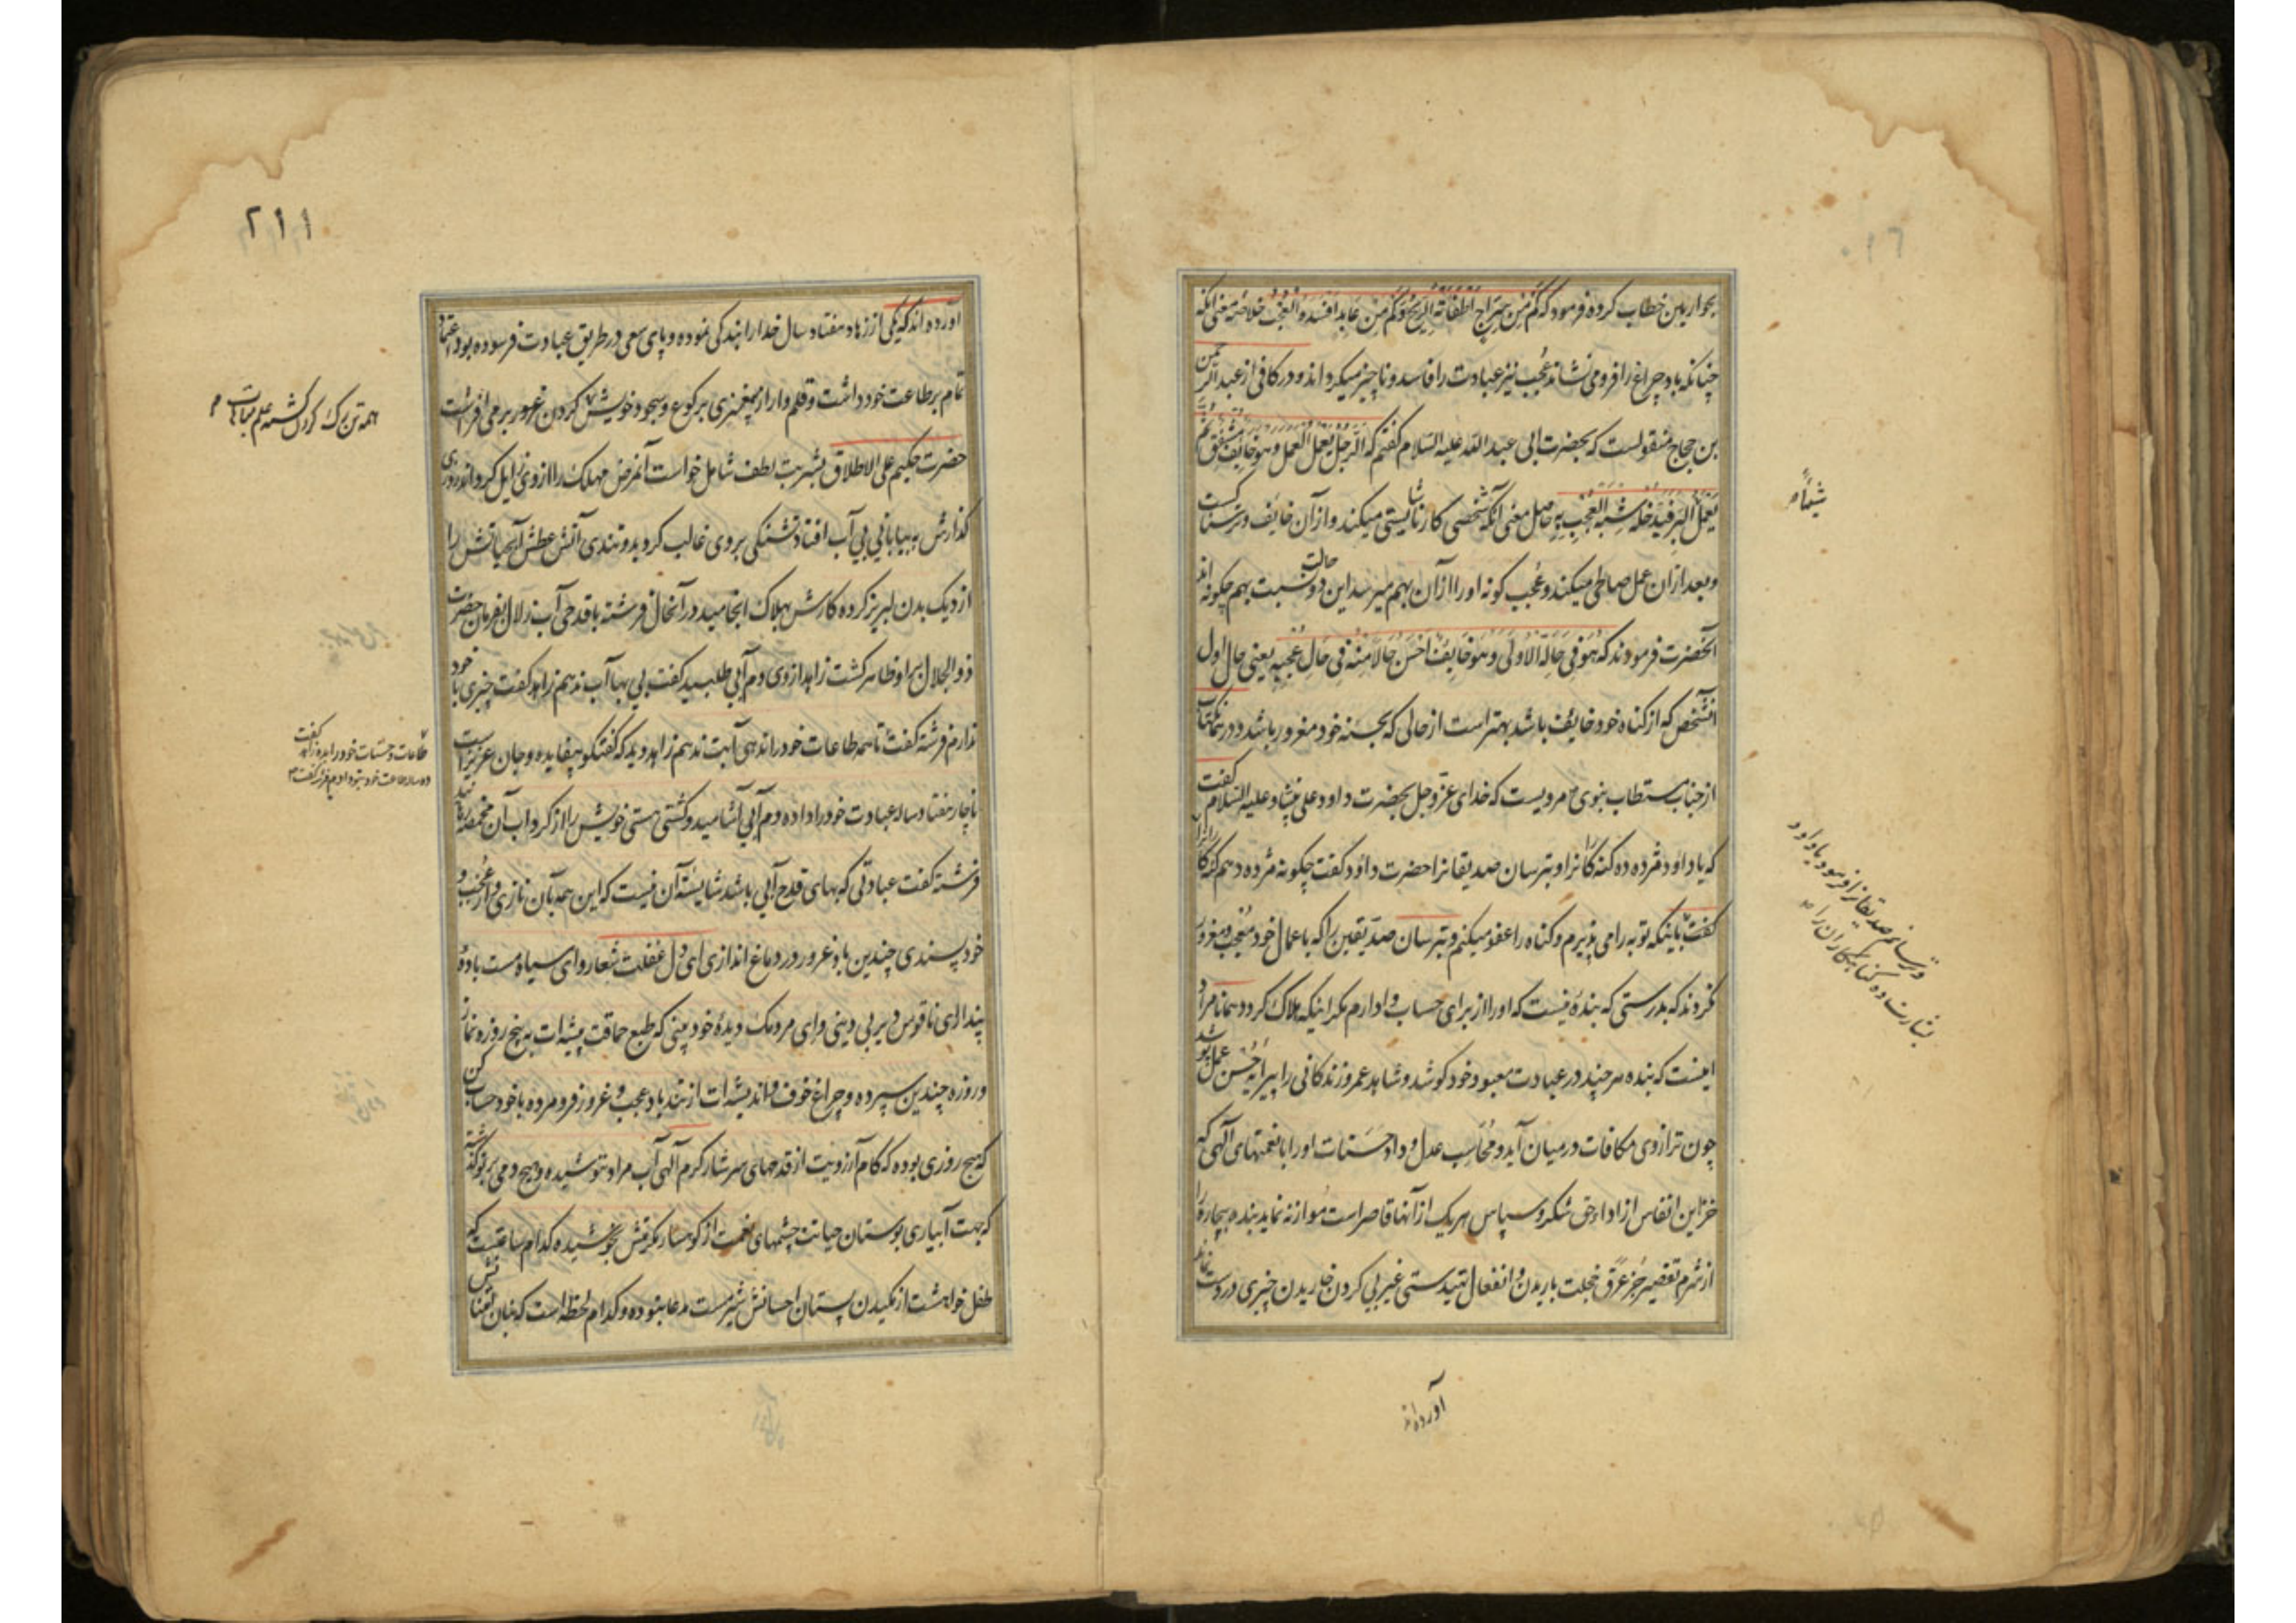 بحواریین خطاب کرده فرمود که کَمْ مِنْ سِرَاجٍ اَطْفَأَتْهُ الرِّیحُ وَکَمْ مِنْ عَابِدٍ اَفْسَدَهُ الْعُجْبُ خلاصه معنی آنکه
چنانکه باد چراغ را فرو می نشاند عُجب نیز عبادت را فاسد و ناچیز میکرداند و در کافی از عبد الرحمن
بن حجاج منقولست که بحضرت ابی عبد الله علیه السلام کفتم که الرَّجُلُ یَعْمَلُ الْعَمَلَ وَهُوَ خَایِفٌ مُشْفِقٌ ثُمَّ
یَعْمَلُ الْبِرَّ فَیَدْخُلُهُ شِبْهُ الْعُجْبِ بِهِ حاصل معنی آنکه شخصی کار ناشایستی میکند و از آن خایف و ترسناکست
و بعد از ان عمل صالحی میکند و عُجب کونه او را از آن بهم میرسد این دو حالت نسبت بهم چکونه اند
آنحضرت فرمودند که هُوَ فِی حَالِهِ الْاُولَی وَهُوَ خَایِفٌ اَحْسَنُ حَالًا مِنْهُ فِی حَالِ عُجْبِهِ یعنی حال اول
آنشخص که از کناه خود خایف باشد بهتر است از حالی که بحسنه خود مغرور باشد و در همان کتاب
از جناب مستطاب نبوی ص مرویست که خدای عزّ و جل بحضرت داود علی نبینا و علیه السلام کفت
که یا داود مژده ده کنه کارانرا و بترسان صدیقانرا حضرت داود کفت چکونه مژده دهم کنه کارانرا
کفت باینکه توبه را می پذیرم و کناه را عفو میکنم و بترسان صدیقین را که باعمال خود مُعْجِب و مغرور
نکردند که بدرستی که بندهٔ نیست که او را از برای حساب وادارم مکر اینکه هلاک کردد همانا مراد
اینست که بنده هر چند در عبادت معبود خود کوشد و شاهد عمر و زندکانی را پیرایه حُسن عمل پوشد
چون ترازوی مکافات در میان آید و مُحاسب عدل و داد حَسَنات او را با نعمتهای آلهی که
خزاین انفاس از اداء حق شکر و سپاس هر یک از آنها قاصر است مُوازنه نماید بنده بیچاره را
از شرم تقصیر جُز عَرَق خجلت باریدن و انفعال تهیدستی غیر پی کردن خاریدن چیزی در دست نماند
شیئاً ص
بشارت ده کناهکاران را ص
آورده اند
۲۱۱
آورده اند که یکی از زهاد هفتاد سال خدا را بندکی نموده و پای سعی در طریق عبادت فرسوده بود اعتماد
تمام بر طاعت خود داشت و قلم وار از بیمغزی برکوع و سجود خویش کردن غرور بر می افراشت
حضرت حکیم علی الاطلاق بشربت لطف شامل خواست آنمرض مهلک را از وی زایل کرداند روزی
کذارش به بیابانی بی آب افتاد تشنکی بر وی غالب کردید و تندی آتش عطش آبحیاتش را
از دیک بدن لبریز کرده کارش بهلاک انجامید در آنحال فرشته با قدحی آب زلال بفرمان حضرت
ذو الجلال بر او ظاهر کشت زاهد از وی دم آبی طلبید کفت بی بها آب ندهم زاهد کفت چیزی با خود
ندارم فرشته کفت تا همه طاعات خود را ندهی آبت ندهم زاهد دید که کفتکو بیفایده و جان عزیز است
ناچار هفتاد ساله عبادت خود را داده دم آبی آشامید و کشتی هستی خویش را از کرداب آن مخمصه
فرشته کفت عبادتی که بهای قدح آبی باشد شایسته آن نیست که این همه بآن نازی و از عُجب و
خودپسندی چندین باد غرور در دماغ اندازی ای دل غفلت شعار و ای سیاه مست بادهٔ
پندار ای ناقوس دیر بی دینی و ای مردمک دیدهٔ خودبینی که طبع حماقت پیشه ات به پنج روزه نماز
و روزه چندین سپرده و چراغ خوف و اندیشه ات از تندباد عجب و غرور فرو مرده با خود حساب کن
که هیچ روزی بوده که کام آرزویت از قدحهای سرشار کرم آلهی آب مراد ننوشیده و هیچ دمی بر تو کذشته
که بهت آبیاری بوستان حیاتت چشمهای نعمت از کوهسار مکرمتش نجوشیده کدام ساعتیست که
طفل خواهشت از مکیدن پستان احسانش شیرمست مدعا نبوده و کدام لحظه است که
طاعات و حسنات خود را بده زاهد کفت